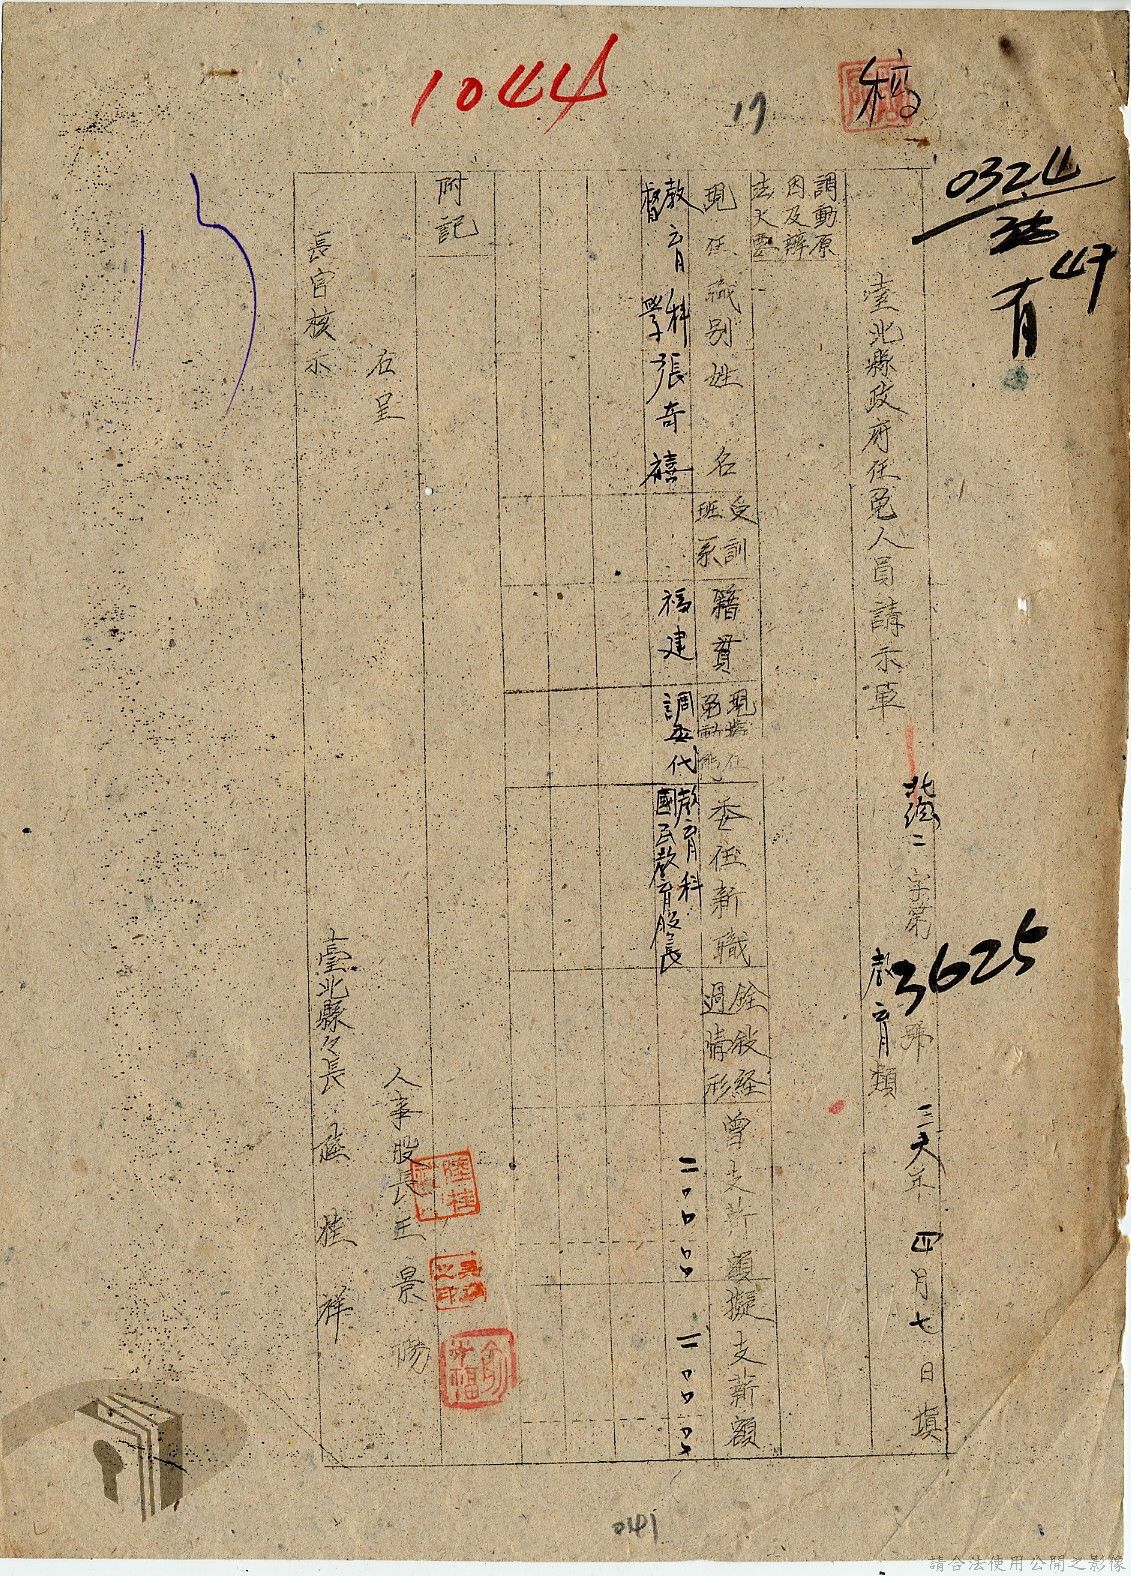 稿
1044
17
0324
35
47
有
臺北縣政府任免人員請示單
北總二字第3625號
教育類
三六年四月七日填
調動原因及辦法大要
現任職別
姓名
受訓班系
籍貫
現擬任免動態
委任新職
銓敘經過情形
曾支薪額
擬支薪額
教育科督學
張奇禧
福建
調委代
教育科國民教育股長
二〇〇〇〇
二〇〇〇〇
附記
右呈
長官核示
人事股長王景暘
臺北縣々長陸桂祥
041
請合法使用公開之影像